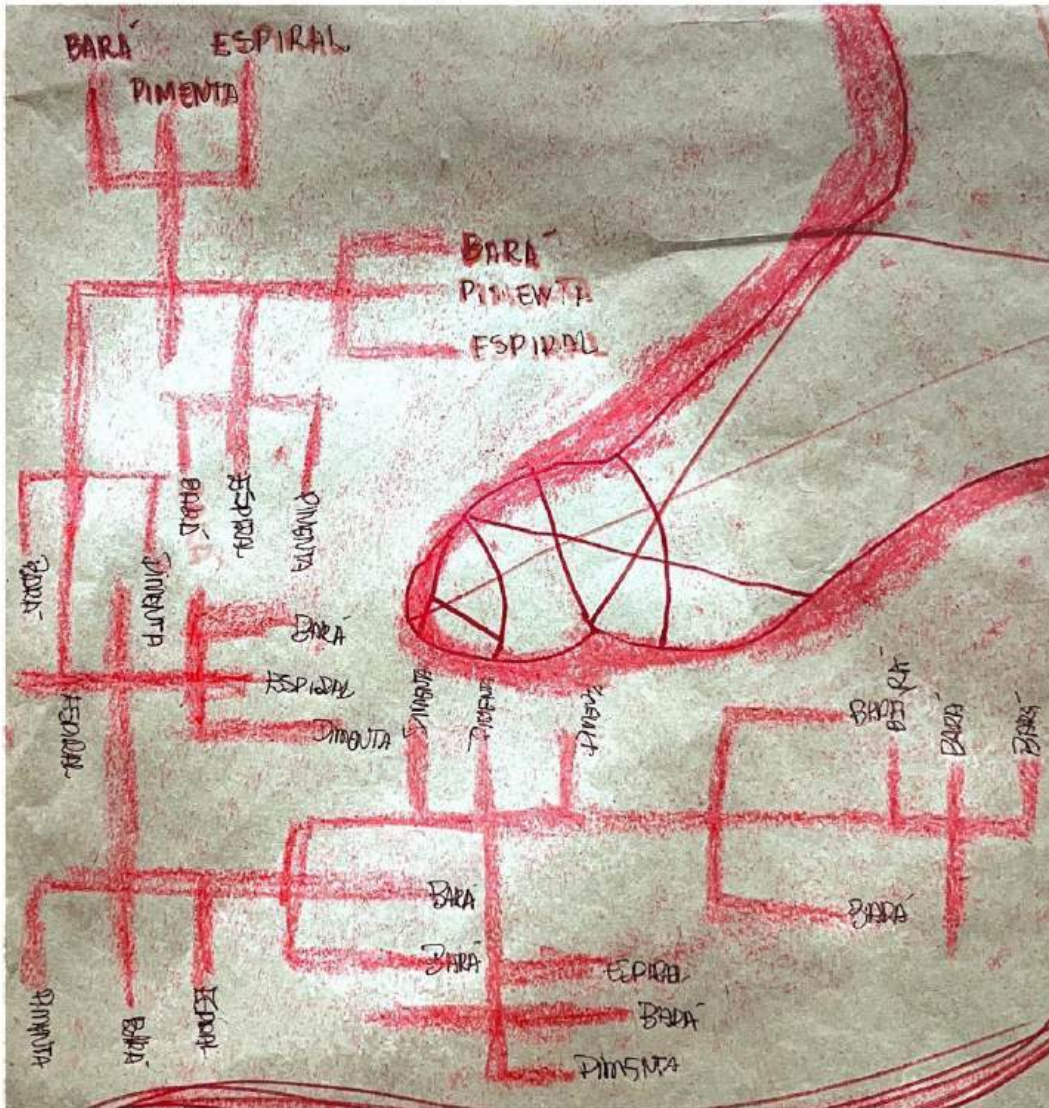 BARÁ ESPIRAL
PIMENTA
BARÁ
PIMENTA
ESPIRAL
BARÁ
ESPIRAL
PIMENTA
BARÁ
PIMENTA
BARÁ
ESPIRAL
PIMENTA
ESPIRAL
PIMENTA
PIMENTA
PIMENTA
BARÁ
BARÁ
BARÁ
BARÁ
BARÁ
BARÁ
BARÁ
ESPIRAL
BARÁ
PIMENTA
PIMENTA
BARÁ
ESPIRAL